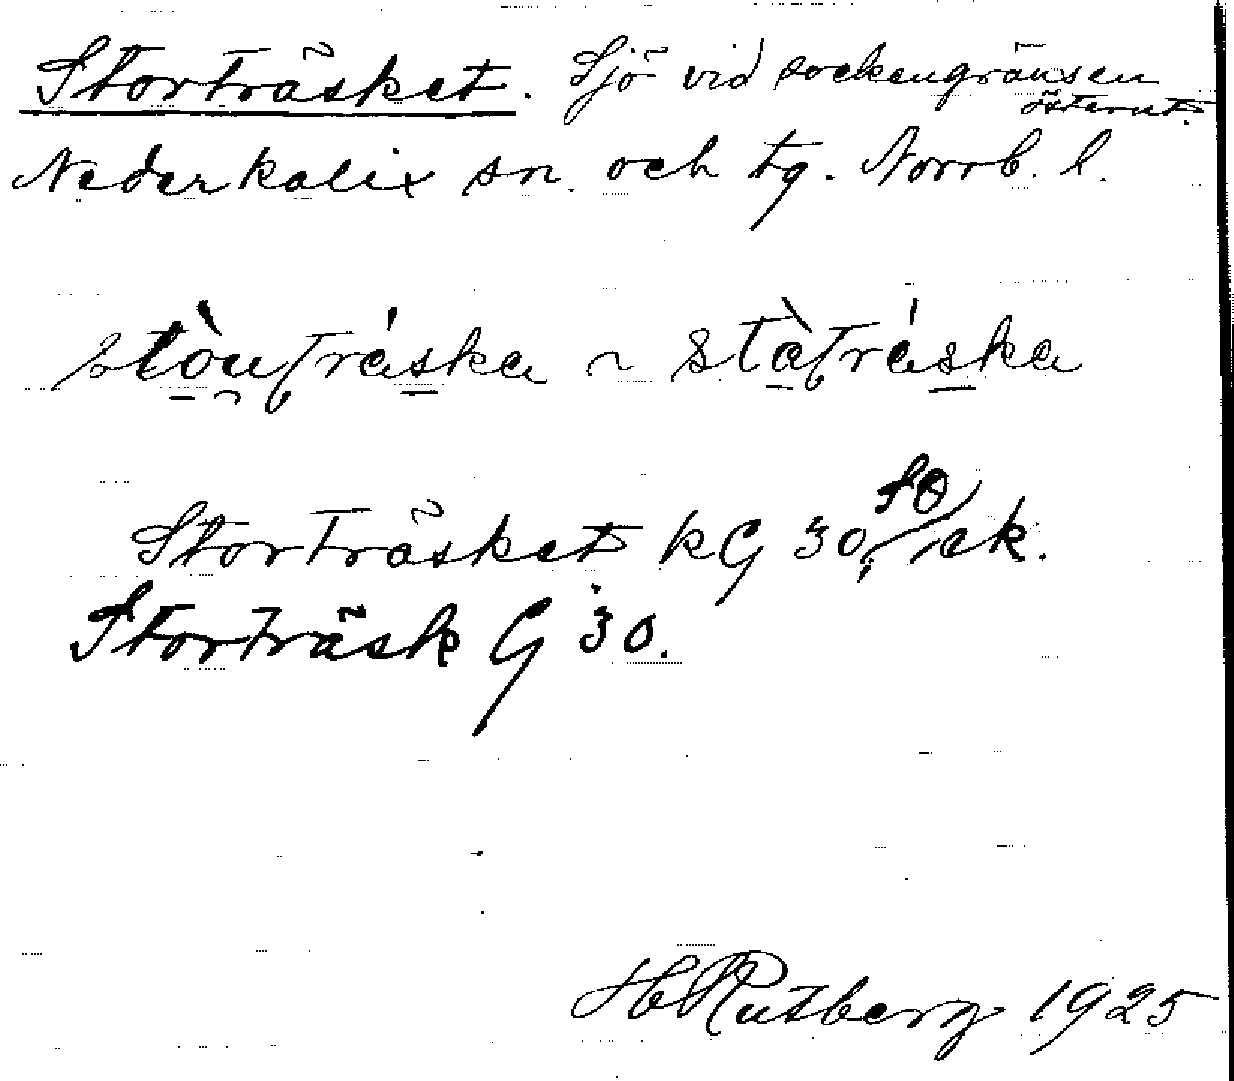 Storträsket. Sjö vid sockengränsen
österut.
Nederkalix sn. och tg. Norrb. l.
stòu̯träska ~ stàträska
Storträsket kG 30, SO/ek.
Storträsk G 30.
H Rutberg 1925